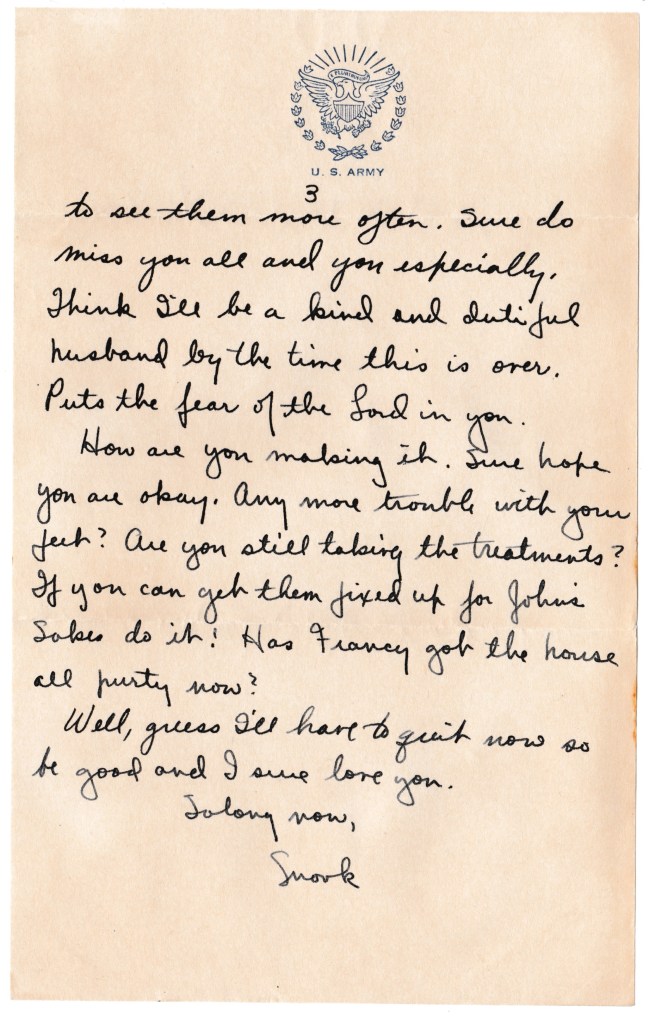 E PLURIBUS UNUM
U. S. ARMY
3
to see them more often. Sure do
miss you all and you especially.
Think I'll be a kind and dutiful
husband by the time this is over.
Puts the fear of the Lord in you.
How are you making it. Sure hope
you are okay. Any more trouble with your
feet? Are you still taking the treatments?
If you can get them fixed up for John's
Sakes do it! Has Francy got the house
all purty now?
Well, guess I'll have to quit now so
be good and I sure love you.
Solong now,
Snook